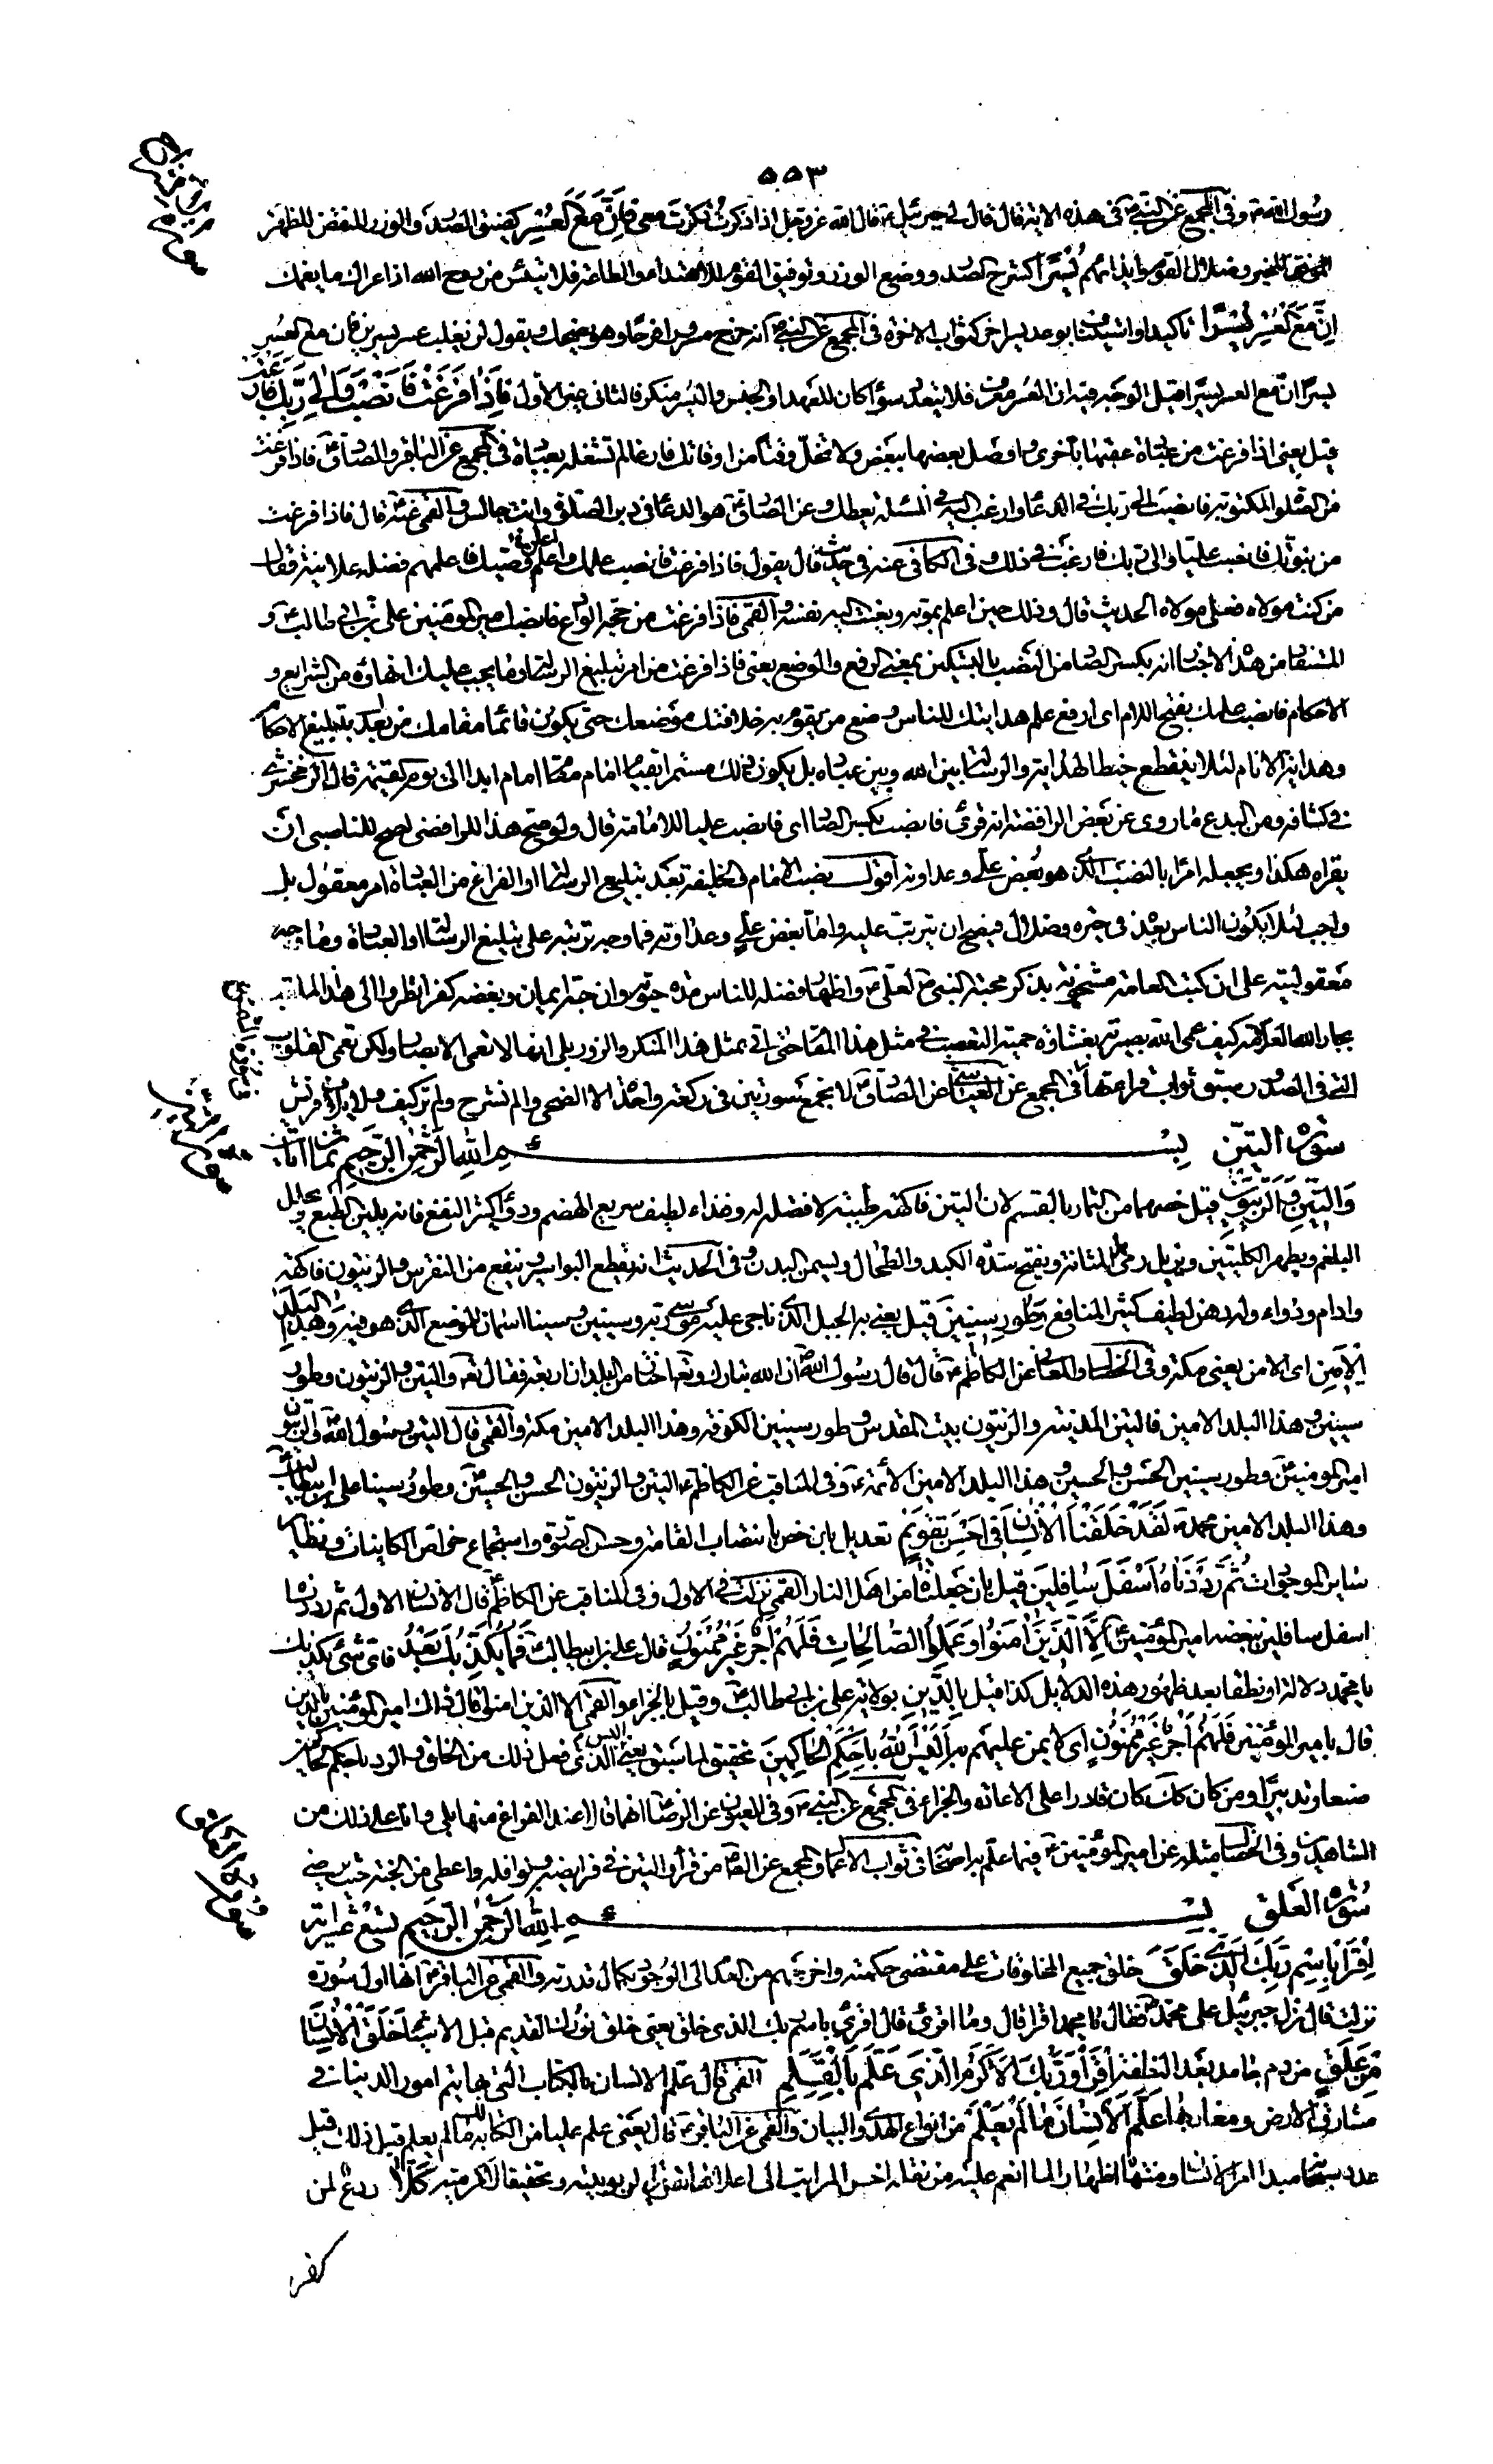 ٥٥٣
رسول الله ص وفي المجمع عن النبي ص في هذه الاية قال قال لي جبرئيل ع قال الله عز وجل اذا ذكرت ذكرت معي فَاِنَّ مَعَ الْعُسْرِ كضيق الصدر والوزر المنقض للظهر
وضلال القوم وايذائهم يُسْراً كشرح الصدر ووضع الوزر وتوفيق القوم للاهتداء والطاعة فلا تيئس من روح الله اذا عراك ما يغمك
اِنَّ مَعَ الْعُسْرِ يُسْراً تاكيد او استيناف بوعد يسر اخر كثواب الاخرة في المجمع عن النبي ص انه خرج مسرورا فرحا وهو يضحك ويقول لن يغلب عسر يسرين فان مع العسر
يسرا ان مع العسر يسرا قيل الوجه فيه ان العسر معرف فلا يتعدد سواء كان للعهد او الجنس واليسر منكر فالثاني غير الاول فَاِذا فَرَغْتَ فَانْصَبْ وَاِلى رَبِّكَ فَارْغَبْ
قيل يعني اذا فرغت من عبادة عقبها باخرى واوصل بعضها ببعض ولا تخل وقتا من اوقاتك فارغا لم تشغله بعبادة في المجمع عن الباقر والصادق ع فاذا فرغت
من الصلوة المكتوبة فانصب الى ربك في الدعاء وارغب اليه في المسئلة يعطك وعن الصادق ع هو الدعاء في دبر الصلوة وانت جالس والقمي عنه قال فاذا فرغت
من نبوتك فانصب عليا والى ربك فارغب في ذلك وفي الكافي عنه في حديث قال يقول فاذا فرغت فانصب علمك واعلن وصيك فاعلمهم فضله علانية فقال
من كنت مولاه فعلي مولاه الحديث قال وذلك حين اعلم بموته ونعيت اليه نفسه والقمي فاذا فرغت من حجة الوداع فانصب امير المؤمنين علي بن ابي طالب ع و
المستفاد من هذه الاخبار انه بكسر الصاد من النصب بالتسكين بمعنى الرفع والوضع يعني فاذا فرغت من امر تبليغ الرسالة وما يجب عليك انهاؤه من الشرايع و
الاحكام فانصب علمك بفتح اللام اي ارفع علم هدايتك للناس وضع من يقوم به خلافتك موضعك حتى يكون قائما مقامك من بعدك بتبليغ الاحكام
وهداية الانام لئلا ينقطع خيط الهداية والرسالة بين الله وبين عباده بل يكون ذلك مستمرا بقيام امام مقام امام ابدا الى يوم القيمة قال الزمخشري
في كشافه ومن البدع ما روي عن بعض الرافضة انه قرئ فانصب بكسر الصاد اي فانصب عليا للامامة قال ولو صح هذا للرافضي لصح للناصبي ان
يقراه هكذا ويجعله امرا بالنصب الذي هو بغض علي وعداوته اقول نصب الامام والخليفة بعد تبليغ الرسالة او الفراغ من العبادة امر معقول بل
واجب لئلا يكون الناس بعده في حيرة وضلال فيصح ان يترتب عليه واما بغض علي وعداوته فما وجه ترتبه على تبليغ الرسالة او العبادة وما وجه
معقوليته على ان كتب العامة مشحونة بذكر محبة النبي ص لعلي ع واظهار فضله للناس مدة حيوته وان حبه ايمان وبغضه كفر انظروا الى هذا الملقب
بجار الله العلامة كيف عمى الله بصيرته بغشاوة حمية التعصب في مثل هذا المقام حتى اتى بمثل هذا المنكر والزور بلى انها لا تعمى الابصار ولكن تعمى القلوب
التي في الصدور سبق ثواب قراءتها في المجمع عن العياشي عن الصادق ع لا تجمع سورتين في ركعة واحدة الا الضحى والم نشرح والم تر كيف ولايلاف قريش
سورة التين بسم الله الرحمن الرحيم ثمان آيات
وَالتّينِ وَالزَّيْتُونِ قيل خصهما من الثمار بالقسم لان التين فاكهة طيبة لا فضل له وغذاء لطيف سريع الهضم ودواء كثير النفع فانه يلين الطبع ويحلل
البلغم ويطهر الكليتين ويزيل رمل المثانة ويفتح سدة الكبد والطحال ويسمن البدن وفي الحديث انه يقطع البواسير وينفع من النقرس والزيتون فاكهة
وادام ودواء وله دهن لطيف كثير المنافع وَطُورِ سينينَ قيل يعني به الجبل الذي ناجى عليه موسى ربه وسينين وسينا اسمان للموضع الذي هو فيه وَهذَا الْبَلَدِ
الْاَمينِ اي الامن يعني مكة وفي الخصال والمعاني عن الكاظم ع قال قال رسول الله ص ان الله تبارك وتعالى اختار من البلدان اربعة فقال تعالى والتين والزيتون وطور
سينين وهذا البلد الامين فالتين المدينة والزيتون بيت المقدس وطور سينين الكوفة وهذا البلد الامين مكة والقمي قال التين رسول الله ص والزيتون
امير المؤمنين ع وطور سينين الحسن والحسين وهذا البلد الامين الائمة ع وفي المناقب عن الكاظم ع التين والزيتون الحسن والحسين ع وطور سينا علي بن ابي طالب
وهذا البلد الامين محمد ص لَقَدْ خَلَقْنَا الْاِنْسانَ في اَحْسَنِ تَقْويمٍ تعديل بان خص بانتصاب القامة وحسن الصورة واستجماع خواص الكاينات ونظاير
ساير الموجودات ثُمَّ رَدَدْناهُ اَسْفَلَ سافِلينَ قيل بان جعلناه من اهل النار القمي نزلت في الاول وفي المناقب عن الكاظم ع قال الانسان الاول ثم رددناه
اسفل سافلين ببغضه امير المؤمنين ع اِلَّا الَّذينَ امَنُوا وَعَمِلُوا الصَّالِحاتِ فَلَهُمْ اَجْرٌ غَيْرُ مَمْنُونٍ قال علي بن ابي طالب ع فَما يُكَذِّبُكَ بَعْدُ فاي شيء يكذبك
يا محمد دلالة او نطقا بعد ظهور هذه الدلايل كذا قيل بِالدِّينِ بولاية علي بن ابي طالب ع وقيل بالجزاء والقمي الا الذين امنوا قال ذاك امير المؤمنين بالدين
قال بامير المؤمنين فَلَهُمْ اَجْرٌ غَيْرُ مَمْنُونٍ اي لا يمن عليهم به اَلَيْسَ اللهُ بِاَحْكَمِ الْحاكِمينَ تحقيق لما سبق يعني اليس الذي فعل ذلك من الخلق والرد باحكم الحاكمين
صنعا وتدبيرا ومن كان كذلك كان قادرا على الاعادة والجزاء في المجمع عن النبي ص وفي العيون عن الرضا ع انهما قالا عند الفراغ منها بلى وانا على ذلك من
الشاهدين وفي الخصال مثله عن امير المؤمنين ع فيما علم به اصحابه في ثواب الاعمال والمجمع عن الصادق ع من قرأ والتين في فرايضه ونوافله اعطي من الجنة حيث يرضى
سورة العلق بسم الله الرحمن الرحيم تسع عشر اية
اِقْرَأْ بِاسْمِ رَبِّكَ الَّذي خَلَقَ خلق جميع المخلوقات على مقتضى حكمته واخرجهم من العدم الى الوجود بكمال قدرته والقمي عن الباقر ع انها اول سورة
نزلت قال نزل جبرئيل على محمد ص فقال يا محمد اقرا قال وما اقرئ قال اقرئ باسم ربك الذي خلق يعني خلق نورك القديم قبل الاشياء خَلَقَ الْاِنْسانَ
مِنْ عَلَقٍ من دم جامد بعد النطفة اِقْرَأْ وَرَبُّكَ الْاَكْرَمُ الَّذي عَلَّمَ بِالْقَلَمِ القمي قال علم الانسان بالكتابة التي بها يتم امور الدنيا في
مشارق الارض ومغاربها عَلَّمَ الْاِنْسانَ ما لَمْ يَعْلَمْ من انواع الهدى والبيان والقمي عن الباقر ع قال يعني علم عليا من الكتابة لك ما لم يعلم قبل ذلك قيل
عدد سبحانه مبدا امر الانسان ومنتهاه اظهارا لما انعم عليه من نقله من اخس المراتب الى اعلاها تقريرا لربوبيته وتحقيقا لاكرميته كَلَّا ردع لمن
كفر